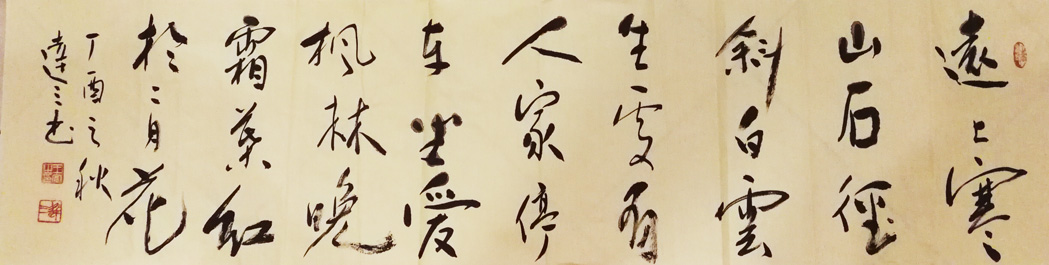 遠上寒
山石徑
斜白雲
生處有
人家停
車坐愛
楓林晚
霜葉紅
於二月
花
丁酉之秋
達三书